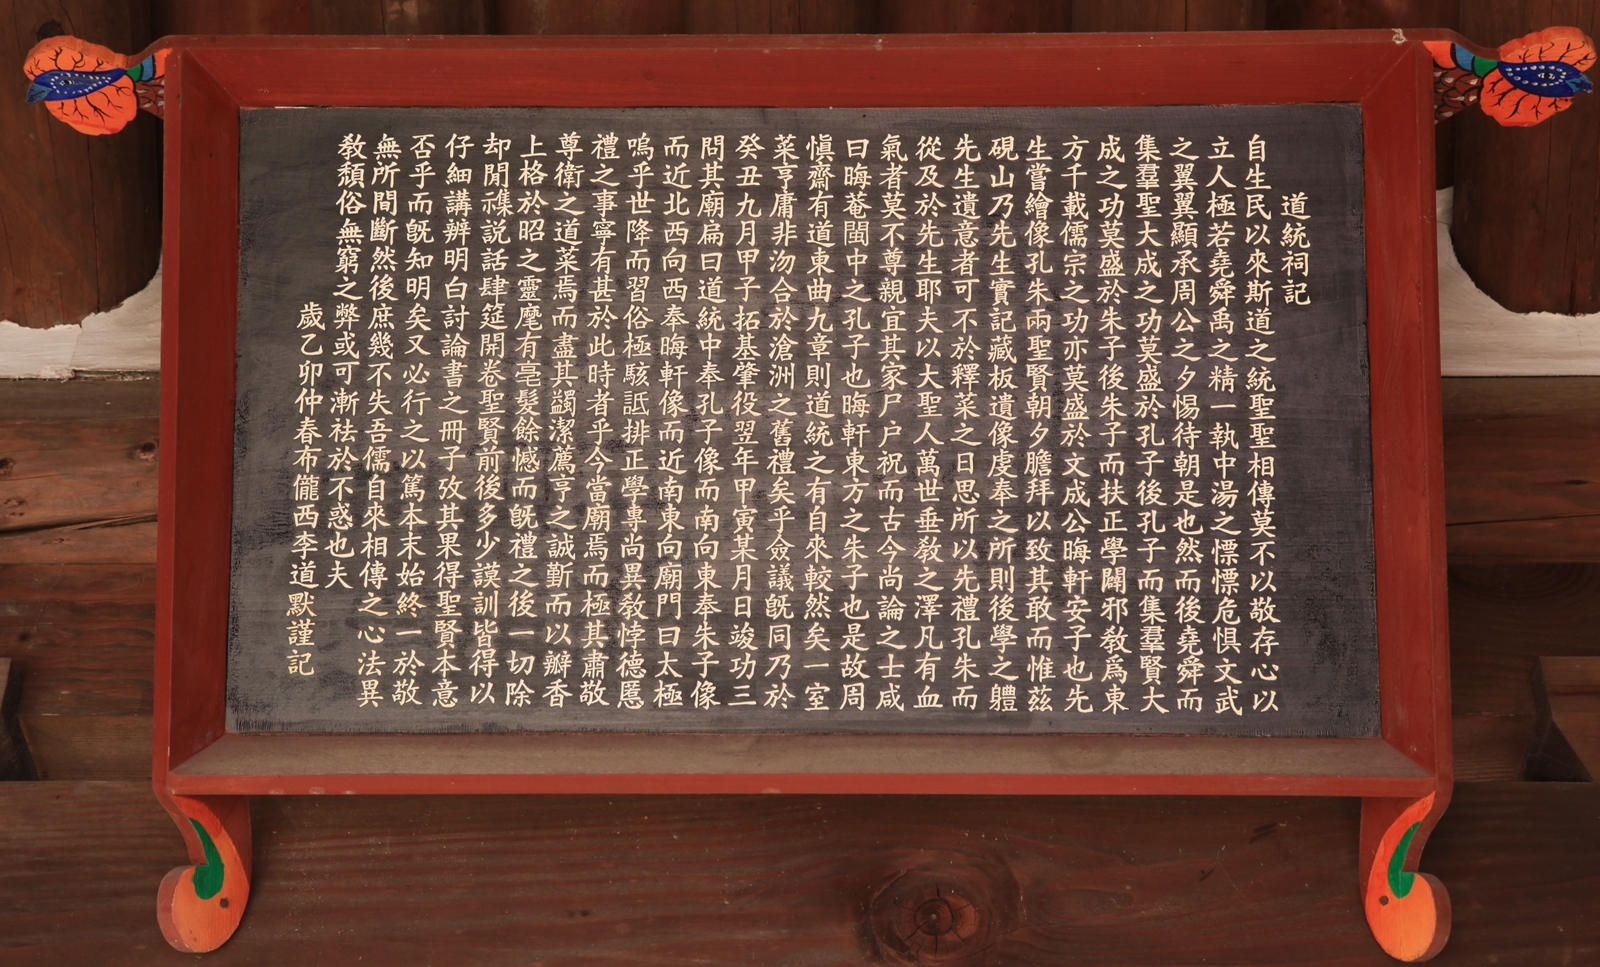 道統祠記
自生民以來斯道之統聖聖相傳莫不以敬存心以
立人極若堯舜禹之精一執中湯之慄慄危惧文武
之翼翼顯承周公之夕惕待朝是也然而後堯舜而
集羣聖大成之功莫盛於孔子後孔子而集羣賢大
成之功莫盛於朱子後朱子而扶正學闢邪敎爲東
方千載儒宗之功亦莫盛於文成公晦軒安子也先
生嘗繪像孔朱兩聖賢朝夕膽拜以致其敢而惟茲
硯山乃先生實記藏板遺像虔奉之所則後學之軆
先生遺意者可不於釋菜之日思所以先禮孔朱而
從及於先生耶夫以大聖人萬世垂敎之澤凡有血
氣者莫不尊親宜其家尸户祝而古今尚論之士咸
曰晦菴閩中之孔子也晦軒東方之朱子也是故周
愼齋有道東曲九章則道統之有自來較然矣一室
菜亨庸非沕合於滄洲之舊禮矣乎僉議旣同乃於
癸丑九月甲子拓基肇役翌年甲寅某月日竣功三
問其廟扁曰道統中奉孔子像而南向東奉朱子像
而近北西向西奉晦軒像而近南東向廟門曰太極
嗚乎世降而習俗極駭詆排正學專尚異敎悖德慝
禮之事寧有甚於此時者乎今當廟焉而極其肅敬
尊衛之道菜焉而盡其蠲潔薦亨之誠斳而以瓣香
上格於昭之靈庭有亳髮餘憾而旣禮之後一切除
却閒襍説話肆筵開卷聖賢前後多少謨訓皆得以
仔細講辨明白討論書之冊子攷其果得聖賢本意
否乎而旣知明矣又必行之以篤本末始終一於敬
無所間斷然後庶幾不失吾儒自來相傳之心法異
敎頹俗無窮之弊或可漸袪於不惑也夫
歲乙卯仲春布儱西李道默謹記